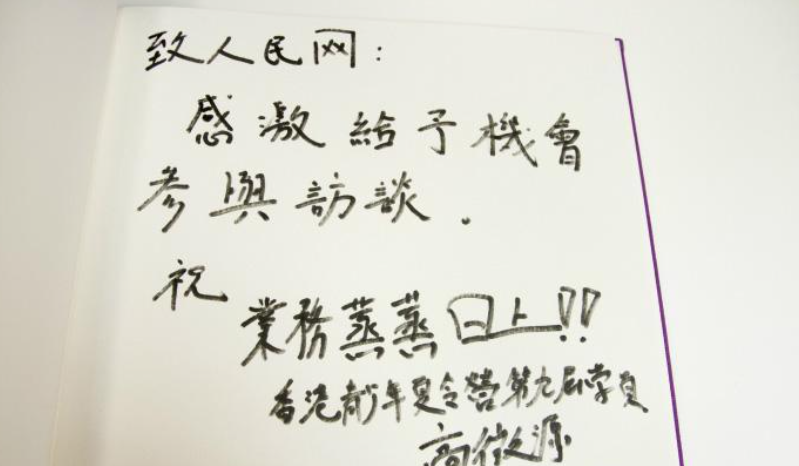 致人民网:
感激給予機會
參與訪談.
祝
業務蒸蒸日上!!
香港青少年夏令營第九屆學員
高微源